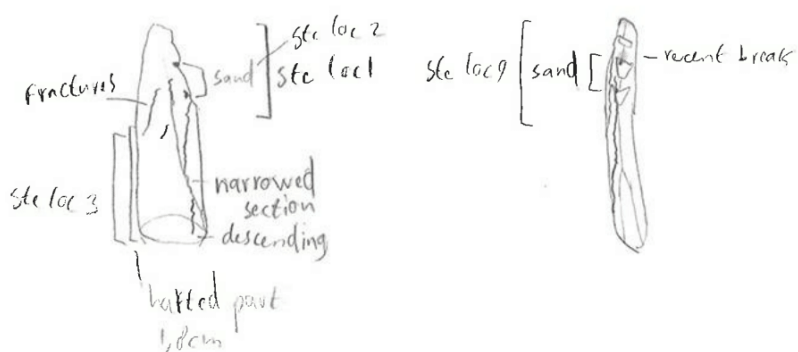 ste loc 2
sand
ste loc1
fractures
ste loc 3
narrowed
section
descending
hafted part
1,8cm
ste loc 9
sand
recent break